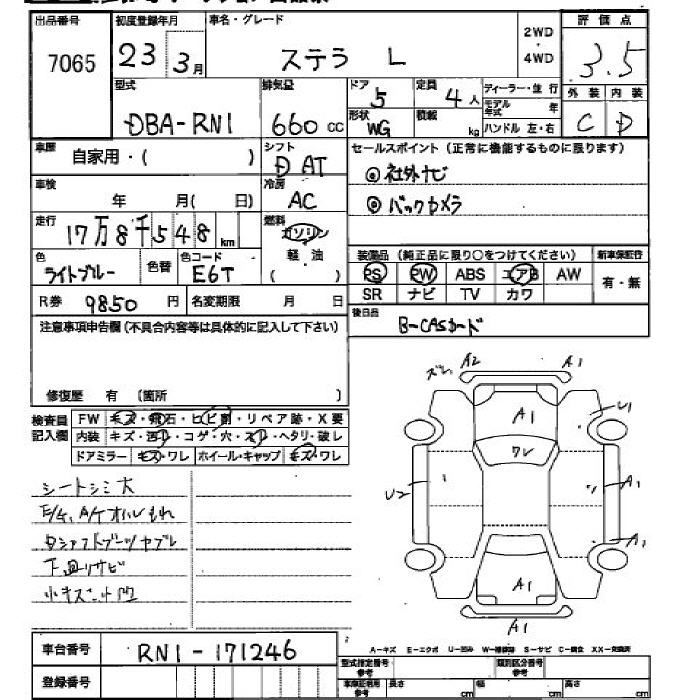 出品番号 初度登録年月 車名・グレード 2WD 評価点
7065 23 3月 ステラ L ・ 4WD 3.5
型式 排気量 ドア 5 定員 4人 ディーラー・並行 外装 内装
DBA-RN1 660cc 形状 WG 積載 kg モデル年式 年 C D
ハンドル 左・右
車歴 自家用・( ) シフト D AT セールスポイント(正常に機能するものに限ります)
◎社外ナビ
車検 年 月( 日) 冷房 AC ◎バックカメラ
走行 17万8千548km 燃料 ガソリン
軽油
( )
色 ライトブルー 色替 色コード E6T 装備品(純正品に限り○をつけてください) 新車保証書
PS PW ABS エアB AW 有・無
R券 9850円 名変期限 月 日 SR ナビ TV カワ
注意事項申告欄(不具合内容等は具体的に記入して下さい) 後日品 B-CASカード
修復歴 有 (箇所 )
検査員記入欄 FW キズ・飛石・ヒビ割・リペア跡・X要
内装 キズ・汚れ・コゲ・穴・スレ・ヘタリ・破レ
ドアミラー キズ・ワレ ホイール・キャップ キズ・ワレ
シートシミ大
E/G, A/Tオイルもれ
タシャフトブーツヤブレ
下廻りサビ
小キズ・凹
ズレ A2 A1
A1 U1
ワレ
U2 A1
A1
A1
車台番号 RN1-171246
登録番号
A-キズ E-エクボ U-凹み S-サビ C-腐食
型式指定番号 参考 類別区分番号 参考
車庫証明用 参考 長さ cm 幅 cm 高さ cm